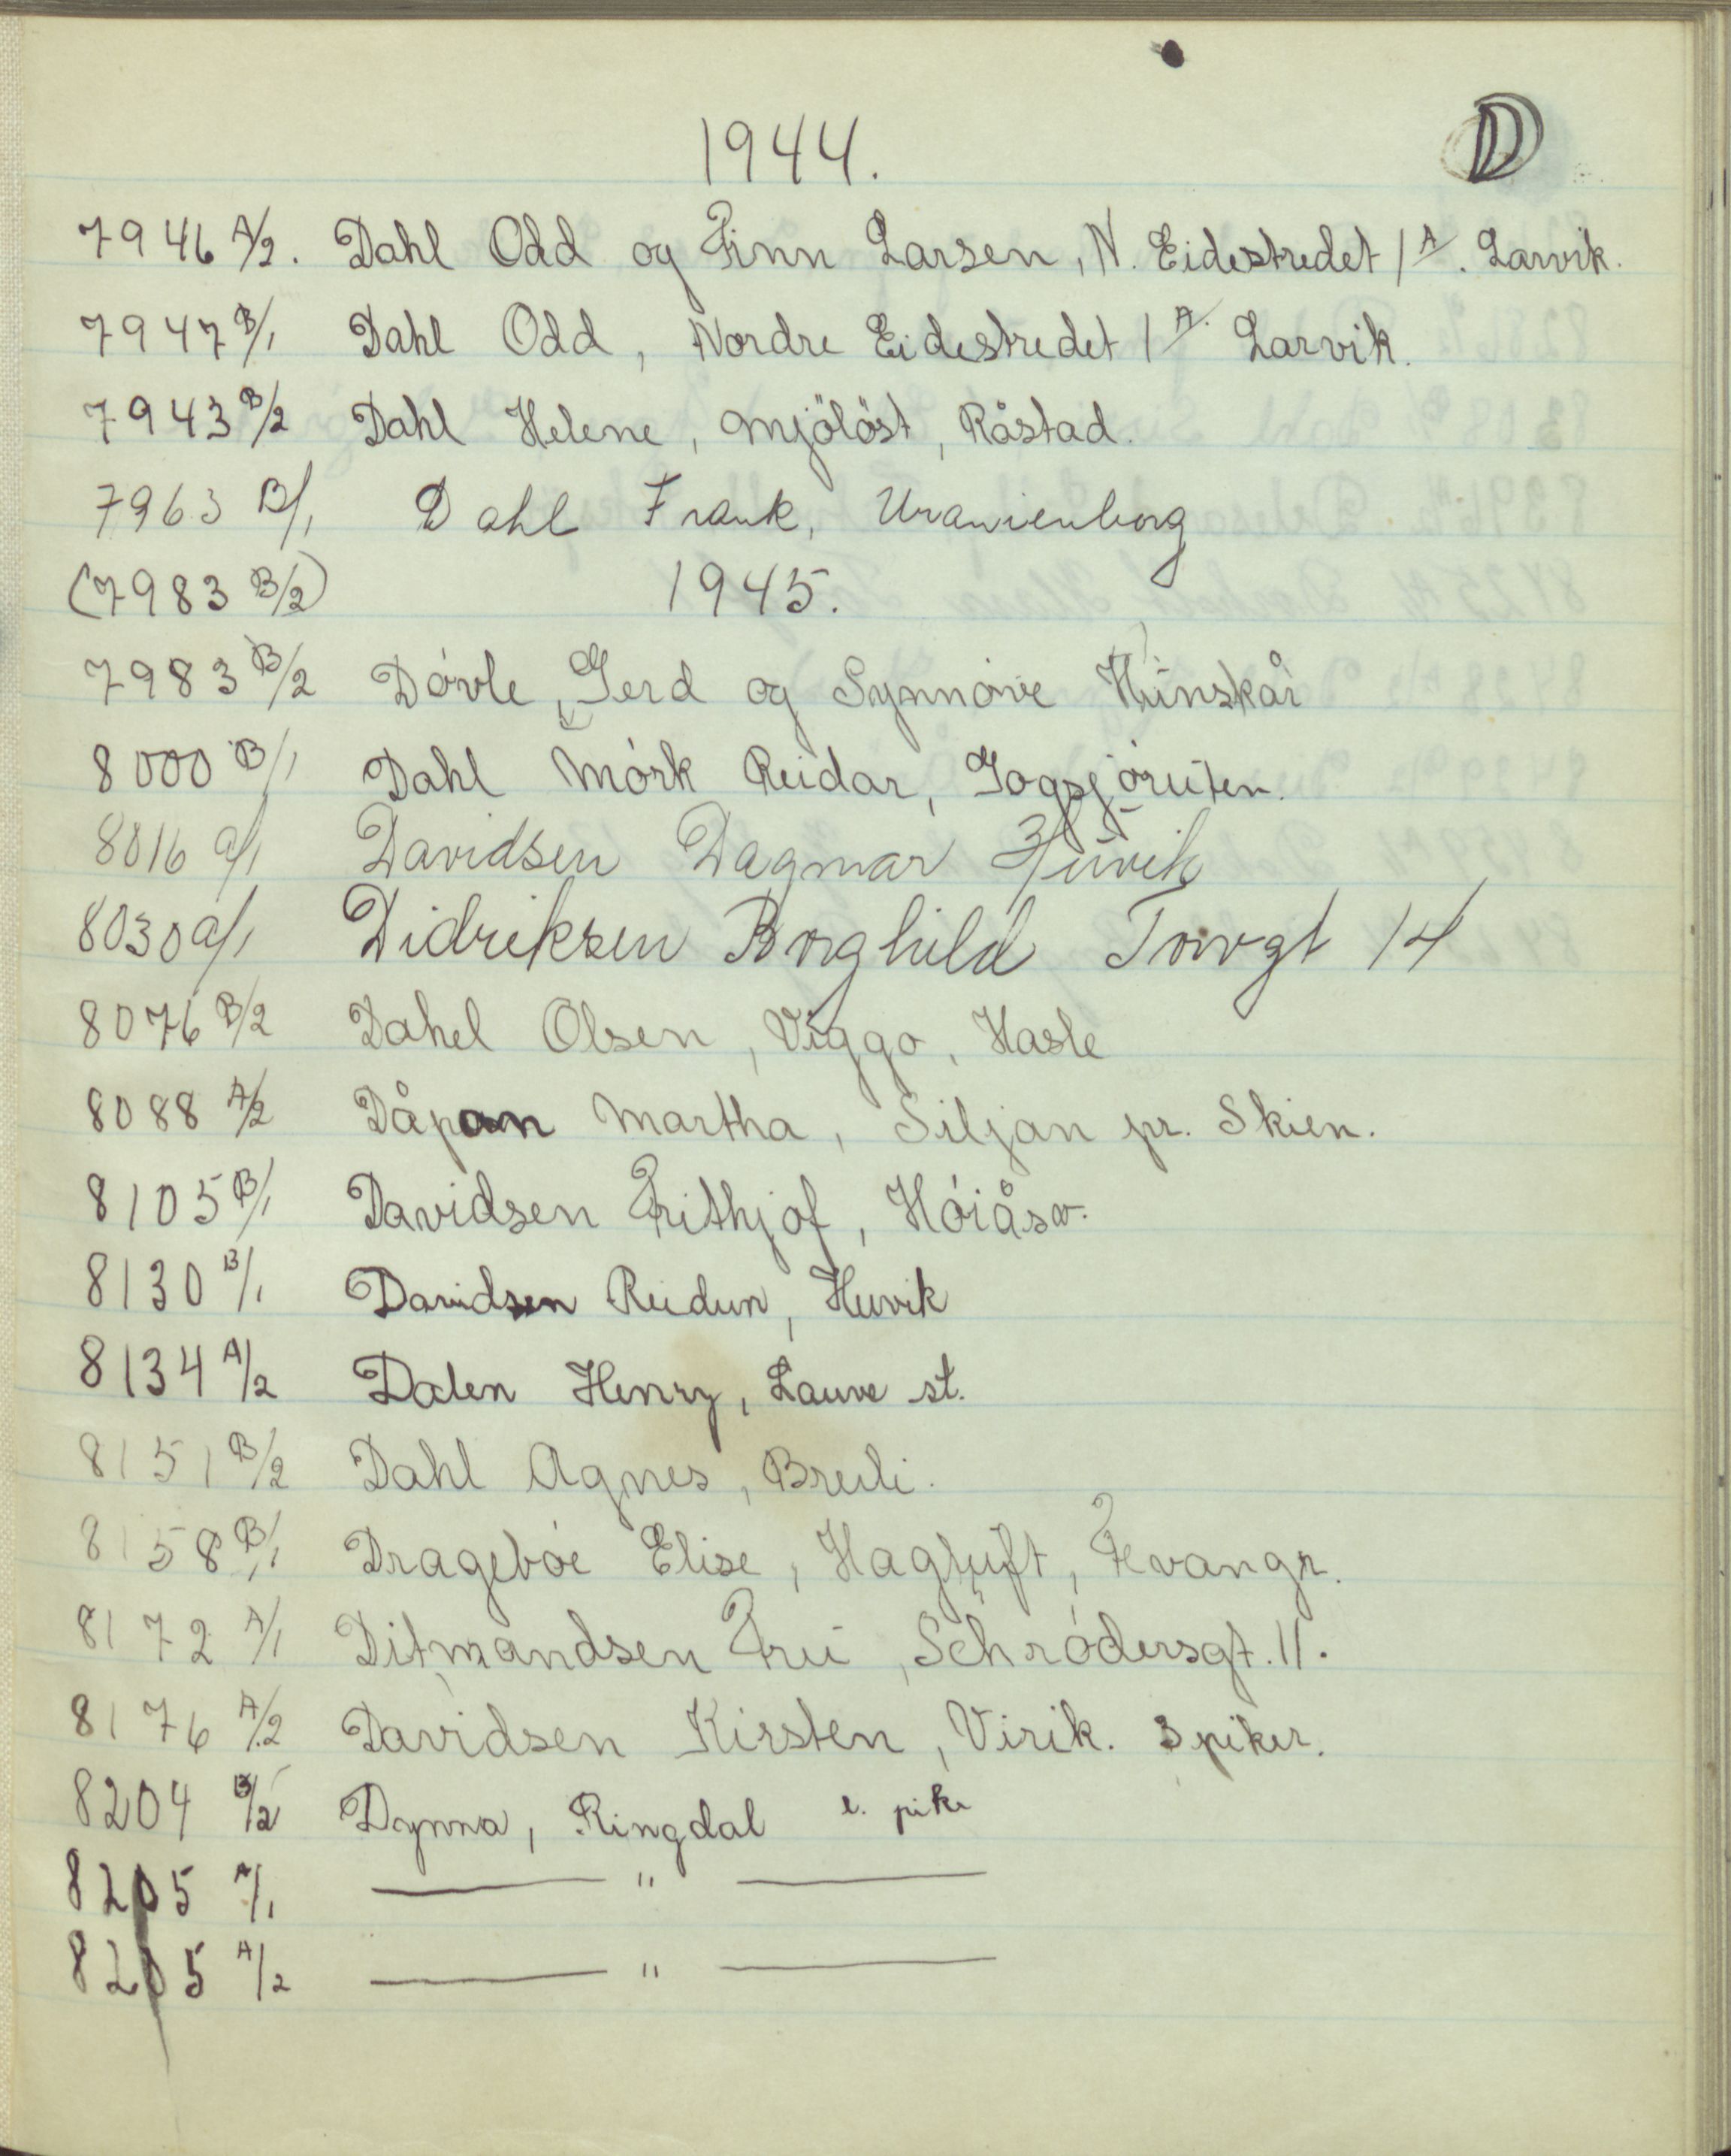 D
1944.
7946 A/2. Dahl Odd og Finn Larsen, N. Eidestredet 1 A. Larvik.
7947 B/1 Dahl Odd, Nordre Eidestredet 1 A. Larvik.
7943 B/2 Dahl Helene, Mjölöst, Råstad.
7963 B/1 Dahl Frank, Uranienborg
(7983 B/2) 1945.
7983 B/2 Dóvle, Gerd og Synnóve Hünskår
8000 B/1 Dahl Mórk Reidar, Gogsjóruten.
8016 a/1 Davidsen Dagmar Huvik
8030 a/1 Didriksen Borghild Torvgt 14
8076 B/2 Dahel Olsen, Viggo, Hasle
8088 A/2 Dåpan Martha, Siljan pr. Skien.
8105 B/1 Davidsen Frithjof, Hóiåsv.
8130 B/1 Davidsen Reidun, Huvik
8134 A/2 Dalen Henry, Lauve st.
8151 B/2 Dahl Agnes, Breili.
8158 B/1 Dragebóe Elise, Hagluft, Fevangr.
8172 A/1 Ditmandsen Fru, Schródersgt. 11.
8176 A/2 Davidsen Kirsten, Virik. 3 piker.
8204 B/2 Dynna, Ringdal l. pike
8205 A/1 — " —
8205 A/2 — " —